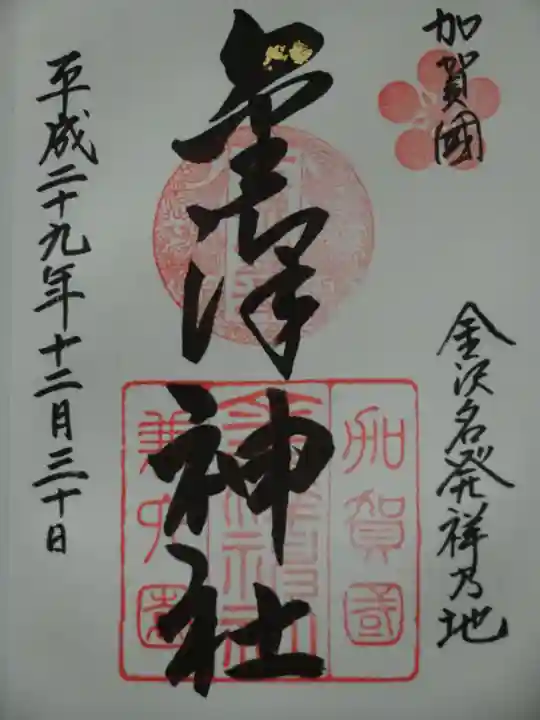 加賀國
金沢名発祥乃地
金澤神社
平成二十九年十二月三十日
加賀國
金澤神社
兼六園